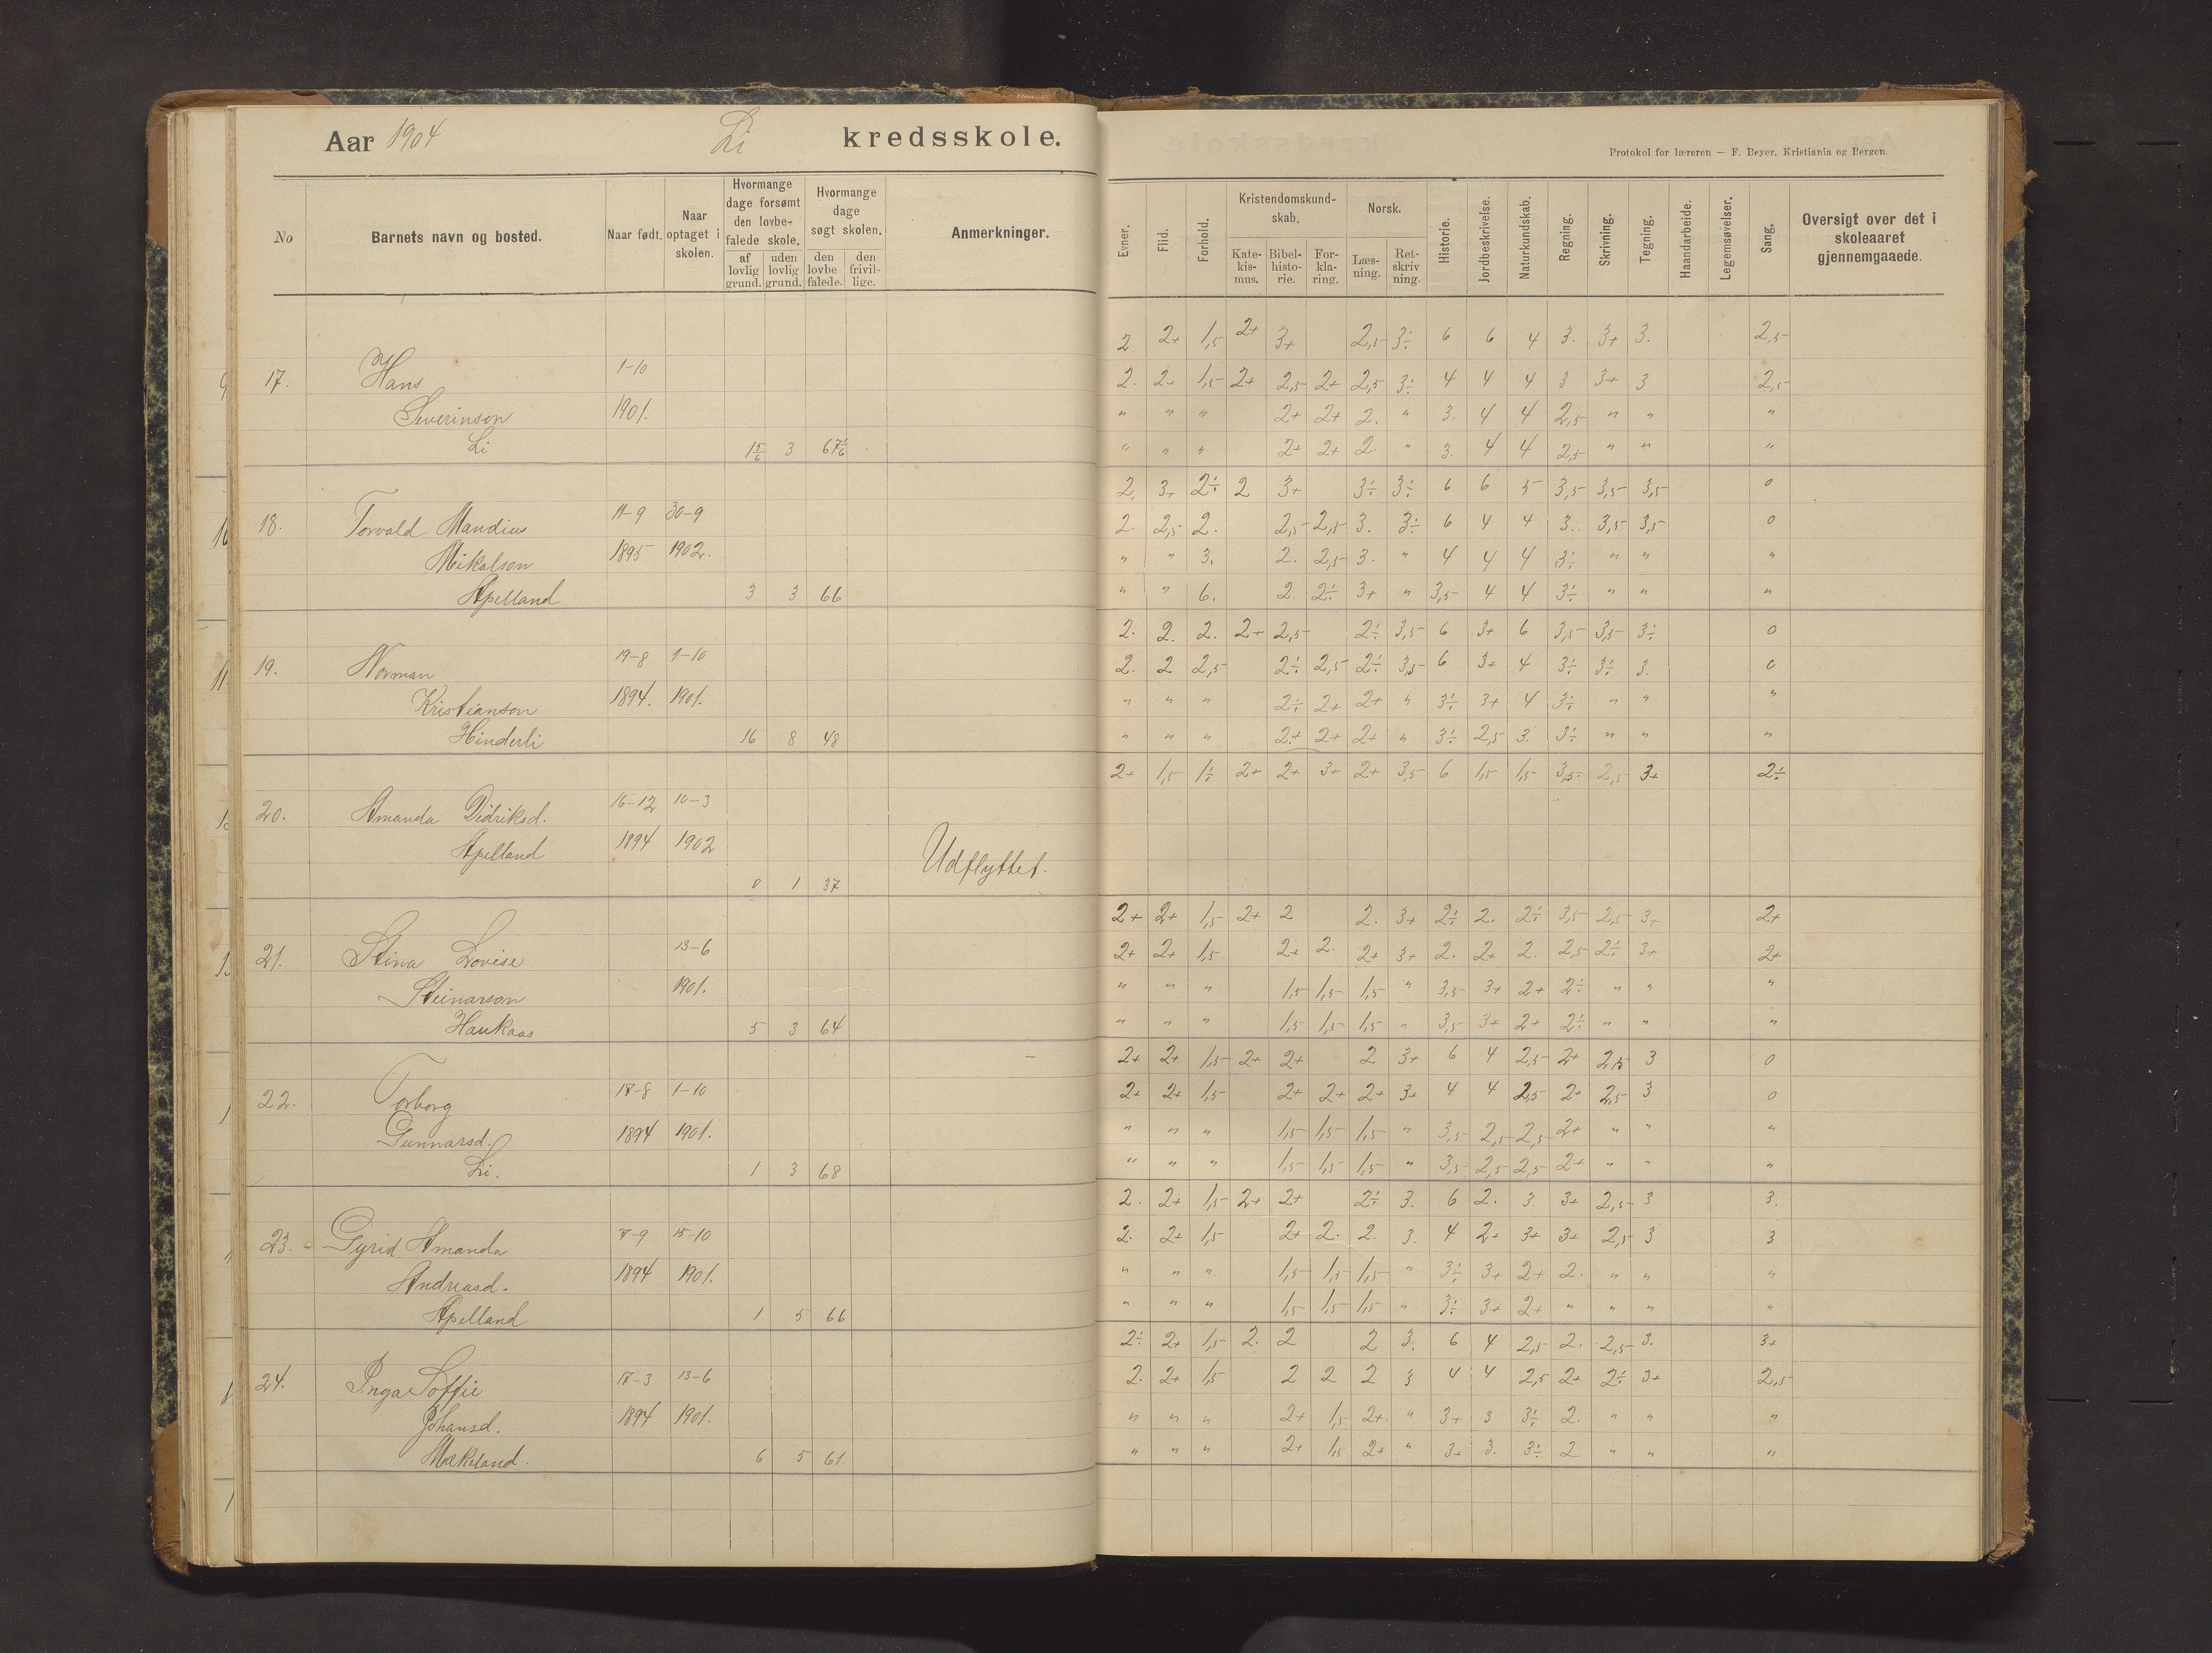 Aar 1904 Li kredsskole.
No
Barnets navn og bosted.
Naar født.
Naar optaget i skolen.
Hvormange dage forsømt den lovbe-falede skole.
af lovlig grund.
uden lovlig grund.
Hvormange dage søgt skolen.
den lovbe falede.
den frivil-lige.
Anmerkninger.
17. Hans 1-10
Severinson 1901.
Li 1 5/6 3 67 1/6
18. Torvald Mandius 11-9 30-9
Mikalson 1895 1902.
Apelland 3 3 66
19. Norman 19-8 1-10
Kristianson 1894. 1901.
Hinderli 16 8 48
20. Amanda Didriksd. 16-12 10-3
Apelland 1894 1902
0 1 37 Udflyttet.
21. Stina Lovise 13-6
Steinarson 1901.
Haukaas 5 3 64
22. Torborg 17-8 1-10
Gunnarsd. 1894 1901.
Li. 1 3 68
23. Gyrid Amanda 7-9 15-10
Andreasd. 1894 1901.
Apelland 1 5 66
24. Inga Soffie 17-3 13-6
Johansd. 1894 1901.
Mækeland. 6 5 61
Protokol for læreren — F. Beyer, Kristiania og Bergen.
Evner.
Flid.
Forhold.
Kristendomskund-skab.
Kate-kis-mus.
Bibel-histo-rie.
For-kla-ring.
Norsk.
Læs-ning.
Ret-skriv ning.
Historie.
Jordbeskrivelse.
Naturkundskab.
Regning.
Skrivning.
Tegning.
Haandarbeide.
Legemsøvelser.
Sang.
Oversigt over det i skoleaaret gjennemgaaede.
2. 2+ 1,5 2+ 3+ 2,5 3÷ 6 6 4 3. 3+ 3. 2,5
2. 2+ 1,5 2+ 2,5 2+ 2,5 3÷ 4 4 4 3 3+ 3 2,5
" " " 2+ 2+ 2. " 3. 4 4 2,5 " " "
" " " 2+ 2+ 2 " 3. 4 4 2,5 " " "
2. 3+ 2÷ 2 3+ 3÷ 3÷ 6 6 5 3,5 3,5 3,5 0
2. 2,5 2. 2,5 2,5 3. 3÷ 6 4 4 3. 3,5 3,5 0
" " 3. 2. 2,5 3. " 4 4 4 3÷ " " "
" " 6. 2. 2÷ 3+ " 3,5 4 4 3÷ " " "
2. 2. 2. 2+ 2,5 2÷ 3,5 6 3+ 6 3,5 3,5 3÷ 0
2. 2 2,5 2÷ 2,5 2÷ 3,5 6 3+ 4 3÷ 3÷ 3. 0
" " " 2÷ 2+ 2+ " 3÷ 3+ 4 3÷ " " "
" " " 2+ 2+ 2+ " 3÷ 2,5 3. 3÷ " " "
2+ 1,5 1÷ 2+ 2+ 3+ 2+ 3,5 6 1,5 1,5 3,5 2,5 3+ 2÷
2+ 2+ 1,5 2+ 2 2. 3+ 2÷ 2. 2÷ 3,5 2,5 3+ 2+
2+ 2+ 1,5 2+ 2. 2+ 3+ 2. 2+ 2. 2,5 2÷ 3+ 2+
" " " 1,5 1,5 1,5 " 3,5 3+ 2+ 2÷ " " "
" " " 1,5 1,5 1,5 " 3,5 3+ 2+ 2÷ " " "
2+ 2+ 1,5 2+ 2+ 2 3+ 6 4 2,5 2+ 2,5 3 0
2+ 2+ 1,5 2+ 2+ 2+ 3+ 4 4 2,5 2+ 2,5 3 0
" " " 1,5 1,5 1,5 " 3,5 2,5 2,5 2+ " " "
" " " 1,5 1,5 1,5 " 3,5 2,5 2,5 2+ " " "
2. 2+ 1,5 2+ 2+ 2÷ 3. 6 2. 3. 3+ 2,5 3 3.
2. 2+ 1,5 2+ 2. 2. 3. 4 2+ 3+ 3+ 2,5 3 3
" " " 1,5 1,5 1,5 " 3÷ 3+ 2+ 2. " " "
" " " 1,5 1,5 1,5 " 3÷ 3+ 2+ " " " "
2÷ 2+ 1,5 2. 2 2 3. 6 4 2,5 2. 2,5 3. 3+
2. 2+ 1,5 2 2 2 3 4 4 2,5 2+ 2÷ 3+ 2,5
" " " 2+ 1,5 2+ " 3+ 3 3÷ 2. " " "
" " " 2+ 1,5 2+ " 3+ 3. 3÷ 2 " " "